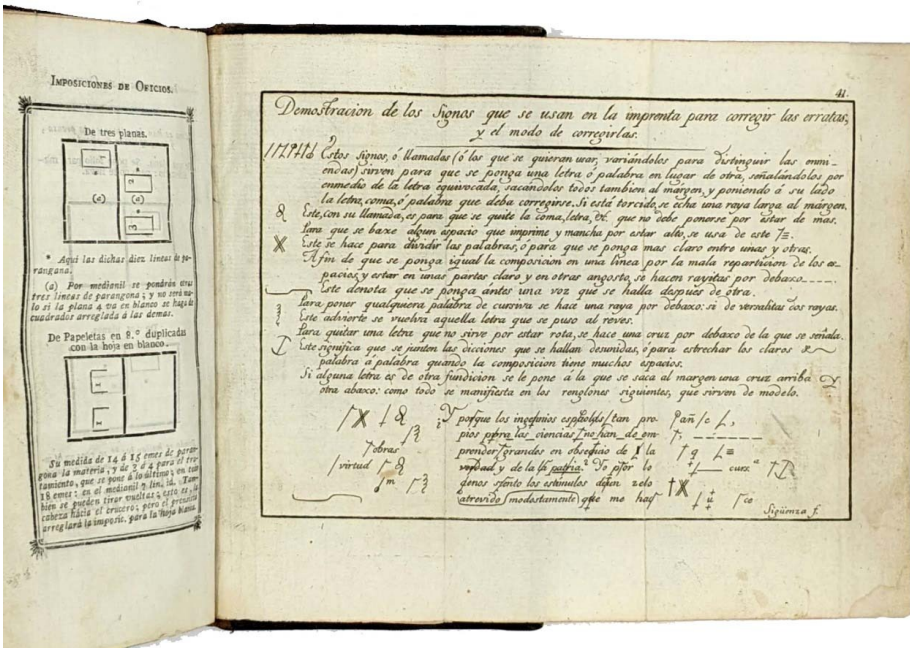 IMPOSICIONES DE OFICIOS.
De tres planas.
(a) (a)
* Aquí las dichas diez lineas de pa-
rangona.
(a) Por medianil se pondrán otras
tres lineas de parangona; y no será ma-
lo si la plana 4 va en blanco se haga de
cuadrados arreglada á las demas.
De Papeletas en 8.º duplicado
con la hoja en blanco.
Su medida de 14 á 15 emes de paran-
gona la materia, y de 3 á 4 para el tra-
tamiento, que se pone á lo último; en todo
18 emes: en el medianil 7 lin. id. Tam-
bien se pueden tirar vueltas; esto es, la
cabeza hácia el crucero; pero el presente
arreglará la imposic. para la hoja blanca.
41.
Demostracion de los Signos que se usan en la imprenta para corregir las erratas,
y el modo de corregirlas.
Estos signos, ó llamadas (ó los que se quieran usar, variándolos para distinguir las enmi-
endas) sirven para que se ponga una letra ó palabra en lugar de otra, señalándolos por
enmedio de la letra equivocada, sacándolos todos tambien al márgen, y poniendo á su lado
la letra, coma, ó palabra que deba corregirse. Si está torcido, se echa una raya larga al márgen.
Este, con su llamada, es para que se quite la coma, letra, &c. que no debe ponerse por estar de mas.
Para que se baxe algun espacio que imprime y mancha por estar alto, se usa de este
Este se hace para dividir las palabras, ó para que se ponga mas claro entre unas y otras.
A fin de que se ponga igual la composicion en una linea por la mala reparticion de los es-
pacios, y estar en unas partes claro y en otras angosto, se hacen rayitas por debaxo
Este denota que se ponga ántes una voz que se halla despues de otra.
Para poner qualquiera palabra de cursiva se hace una raya por debaxo: si de versalitas dos rayas.
Este advierte se vuelva aquella letra que se puso al reves.
Para quitar una letra que no sirve por estar rota, se hace una cruz por debaxo de la que se señala.
Este significa que se junten las dicciones que se hallan desunidas, ó para estrechar los claros
palabra á palabra quando la composicion tiene muchos espacios.
Si alguna letra es de otra fundicion se le pone á la que se saca al margen una cruz arriba y
otra abaxo: como todo se manifiesta en los renglones siguientes, que sirven de modelo.
porque los ingenios tan pro
pios para las ciencias no han de em
prender grandes en obsequio de la
verdad y de la la patria? Yo por lo
los estímulos zelo
atrevido modestamente que me
obras
virtud
m
curs.ª
Sigüenza f.